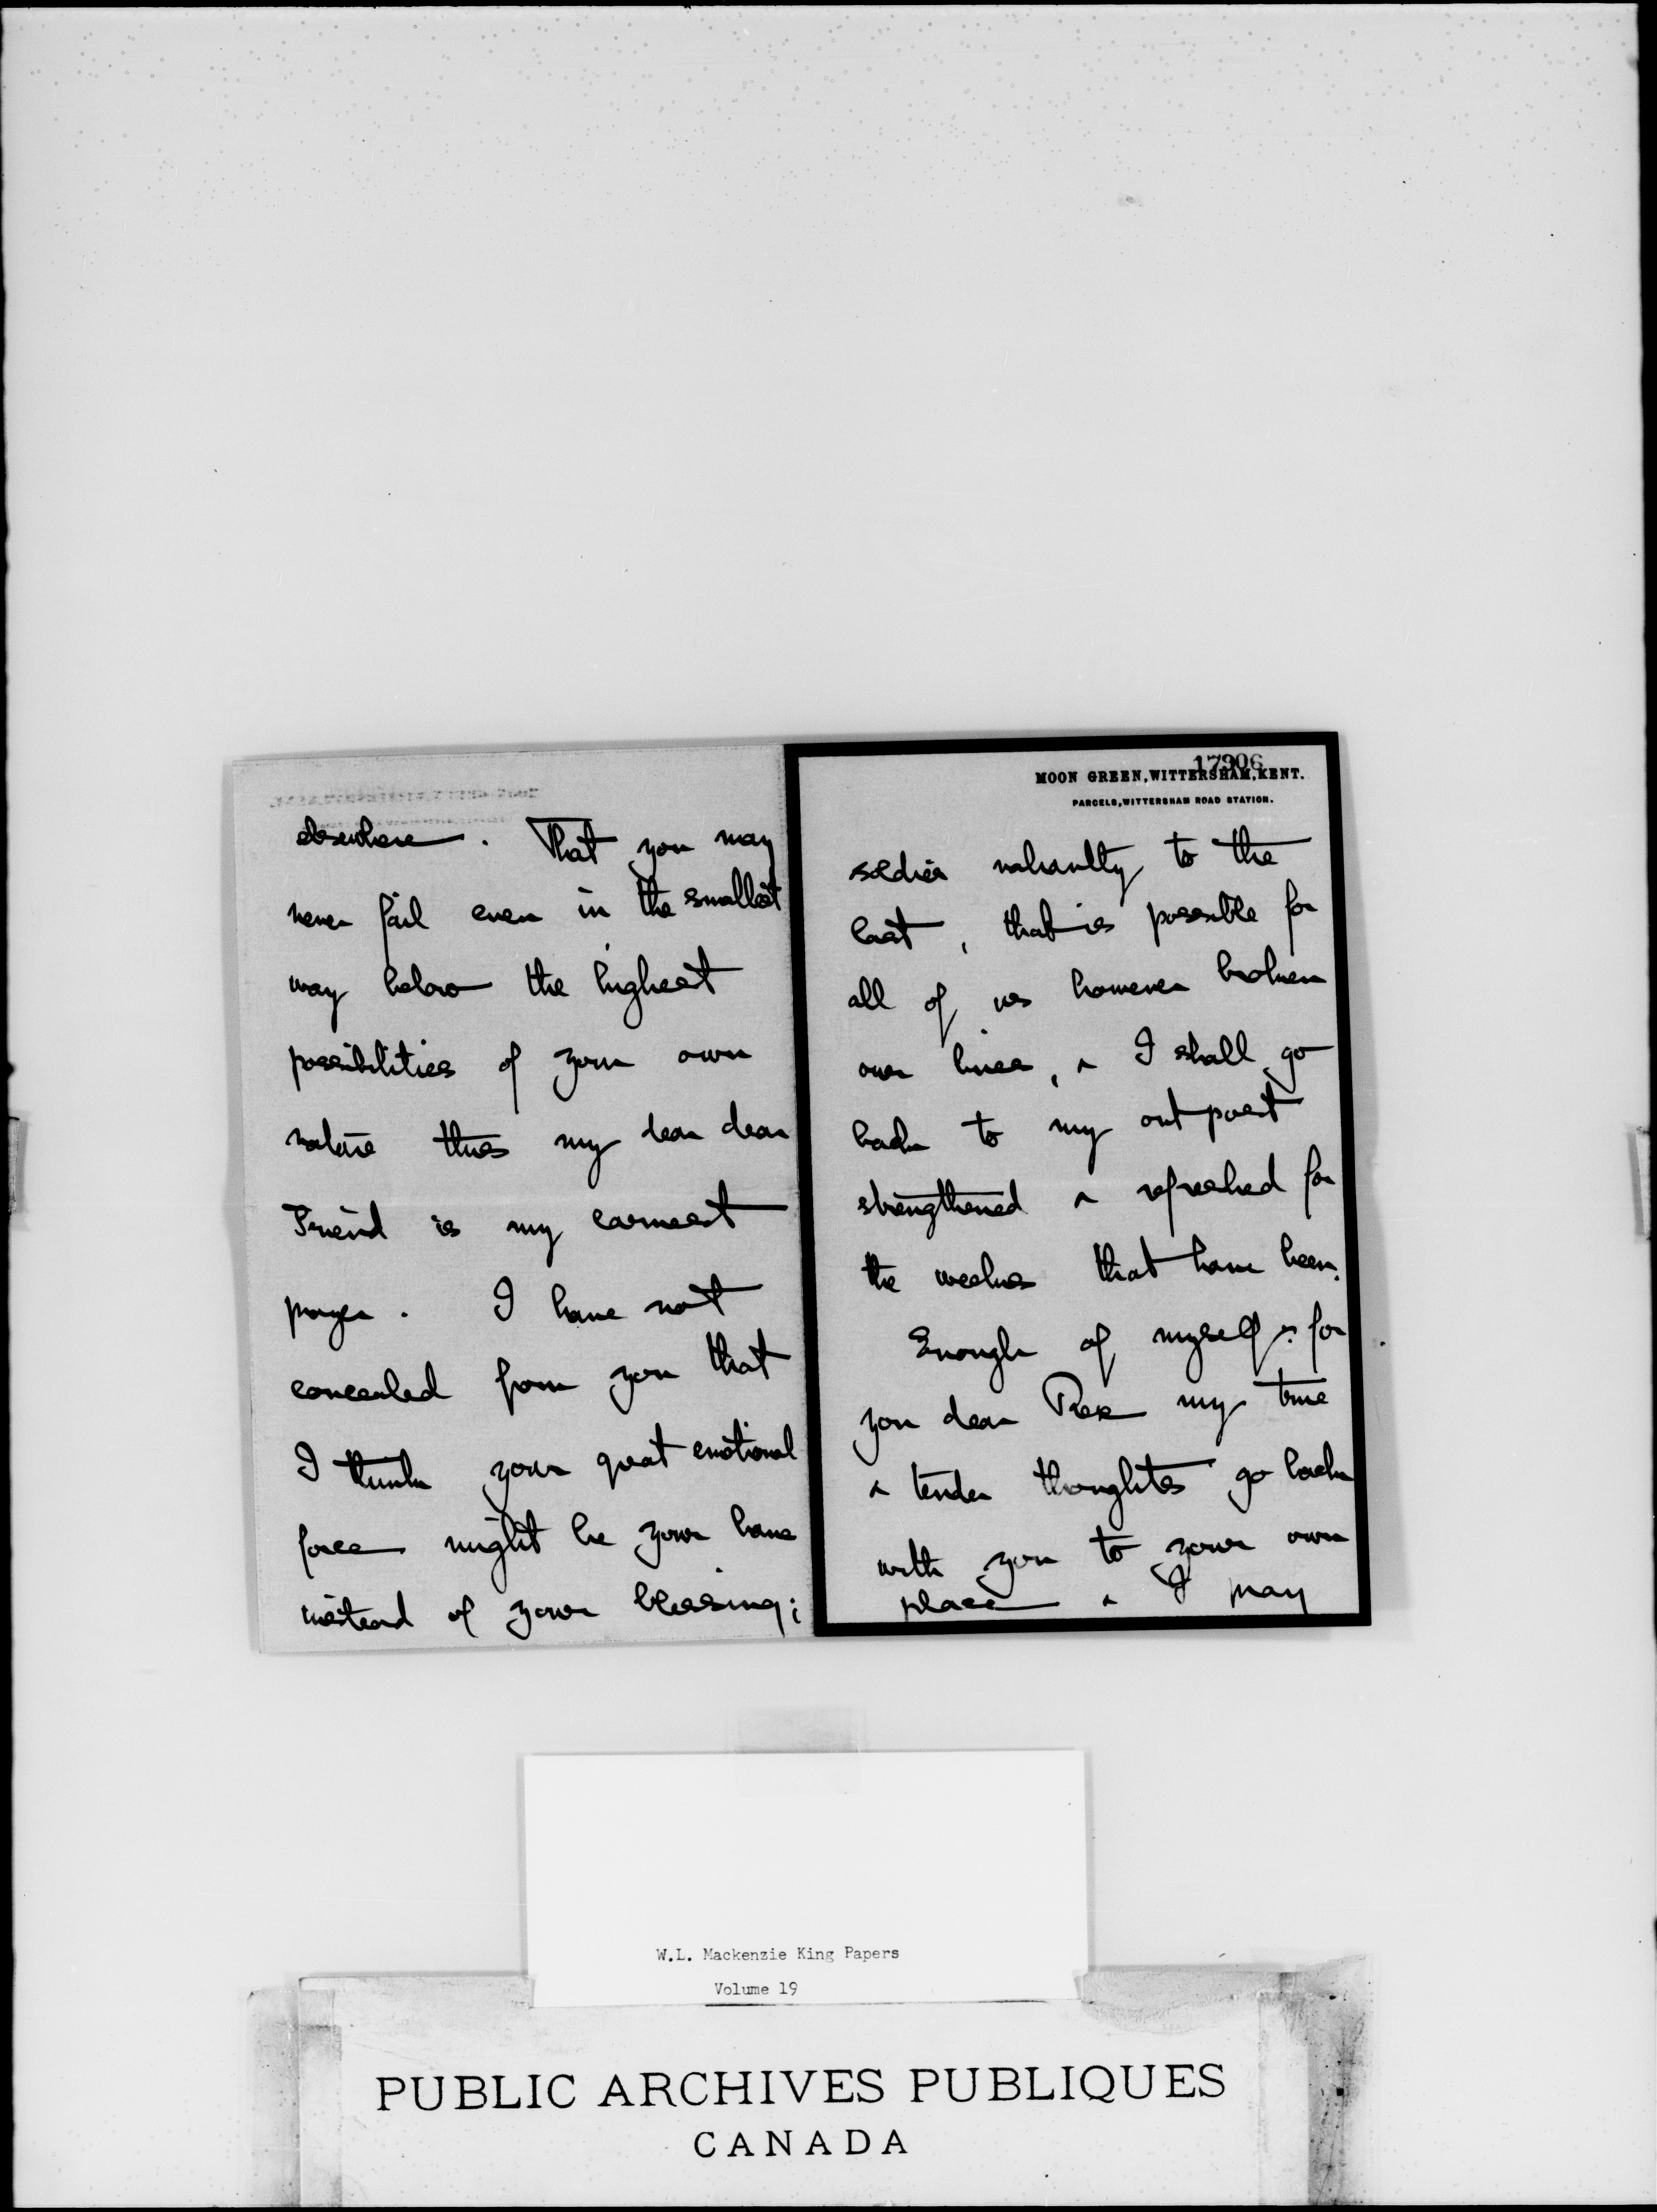 elsewhere. That you may
never fail even in the smallest
way below the highest
possibilities of your own
nature this my dear dear
Friend is my earnest
prayer. I have not
concealed from you that
I think your great emotional
force might be your bane
instead of your blessing;
17906
MOON GREEN, WITTERSHAM, KENT.
PARCELS, WITTERSHAM ROAD STATION.
soldier valiantly to the
last, that is possible for
all of us however broken
our lives, & I shall go
back to my outpost
strengthened & refreshed for
the weeks that have been.
Enough of myself & for
you dear Rex my true
& tender thoughts go back
with you to your own
place & I pray
W.L. Mackenzie King Papers
Volume 19
PUBLIC ARCHIVES PUBLIQUES
CANADA